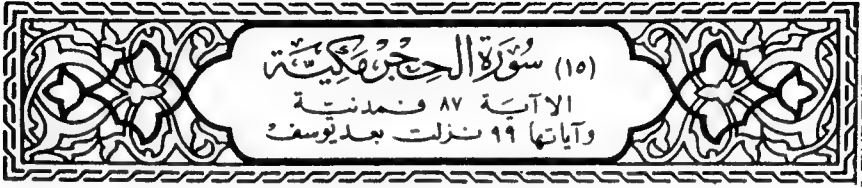 (١٥) سُورَةُ الحِجْرِ مَكِيَّة
الا آية ٨٧ فمدنية
وآياتها ٩٩ نزلت بعد يوسف